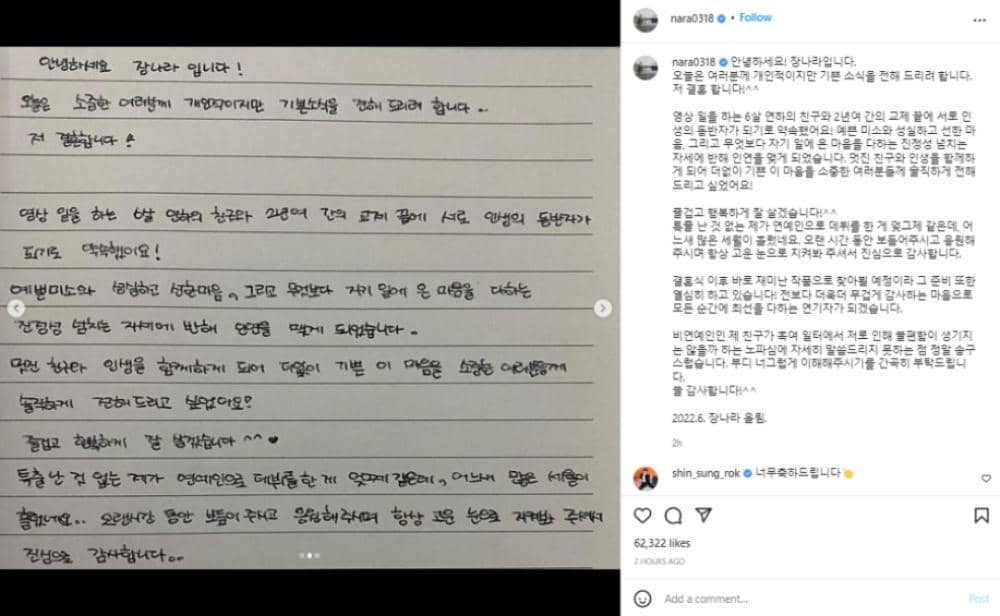 안녕하세요 장나라 입니다!
오늘은 소중한 여러분께 개인적이지만 기쁜소식을 전해 드리려 합니다..
저 결혼합니다^
영상 일을 하는 6살 연하의 친구와 2년여 간의 교제 끝에 서로 인생의 동반자가
되기로 약속했어요!
예쁜미소와 성실하고 선한마음, 그리고 무엇보다 자기 일에 온 마음을 다하는
진정성 넘치는 자세에 반해 인연을 맺게 되었습니다.
멋진 친구와 인생을 함께하게 되어 더없이 기쁜 이 마음을 소중한 여러분들께
솔직하게 전해드리고 싶었어요?
즐겁고 행복하게 잘 살겠습니다^^♥
특출난 것 없는 제가 연예인으로 데뷔를 한 게 엊그제 같은데, 어느새 많은 세월이
흘렀네요.. 오랜시간 동안 보듬어 주시고 응원해주시며 항상 고운 눈으로 지켜봐 주셔서
진심으로 감사합니다..
nara0318 • Follow
nara0318 안녕하세요! 장나라입니다.
오늘은 여러분께 개인적이지만 기쁜 소식을 전해 드리려 합니다.
저 결혼 합니다!^^
영상 일을 하는 6살 연하의 친구와 2년여 간의 교제 끝에 서로 인
생의 동반자가 되기로 약속했어요! 예쁜 미소와 성실하고 선한 마
음, 그리고 무엇보다 자기 일에 온 마음을 다하는 진정성 넘치는
자세에 반해 인연을 맺게 되었습니다. 멋진 친구와 인생을 함께하
게 되어 더없이 기쁜 이 마음을 소중한 여러분들께 솔직하게 전해
드리고 싶었어요!
즐겁고 행복하게 잘 살겠습니다!^^
특출 난 것 없는 제가 연예인으로 데뷔를 한 게 엊그제 같은데, 어
느새 많은 세월이 흘렀네요. 오랜 시간 동안 보듬어주시고 응원해
주시며 항상 고운 눈으로 지켜봐 주셔서 진심으로 감사합니다.
결혼식 이후 바로 재미난 작품으로 찾아뵐 예정이라 그 준비 또한
열심히 하고 있습니다! 전보다 더욱더 무겁게 감사하는 마음으로
모든 순간에 최선을 다하는 연기자가 되겠습니다.
비연예인인 제 친구가 혹여 일터에서 저로 인해 불편함이 생기지
는 않을까 하는 노파심에 자세히 말씀드리지 못하는 점 정말 송구
스럽습니다. 부디 너그럽게 이해해주시기를 간곡히 부탁드립니
다.
늘 감사합니다!^^
2022.6. 장나라 올림.
2h
shin_sung_rok 너무축하드립니다👏
62,322 likes
2 HOURS AGO
Add a comment...
Post